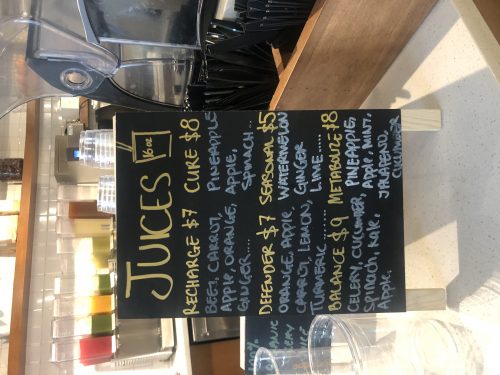 JUICES 16 oz
RECHARGE $7
BEET, CARROT,
APPLE, ORANGE,
GINGER....
CURE $8
PINEAPPLE
APPLE,
SPINACH...
DEFENDER $7
ORANGE, APPLE
CARROT, LEMON,
TURMERIC ......
SEASONAL $5
WATERMELON
GINGER
LIME......
BALANCE $9
CELERY, CUCUMBER,
Spinach, Kale,
Apple.
METABOLIZE $8
PINEAPPLE,
APPLE, MINT,
JALAPENO,
CUCUMBER